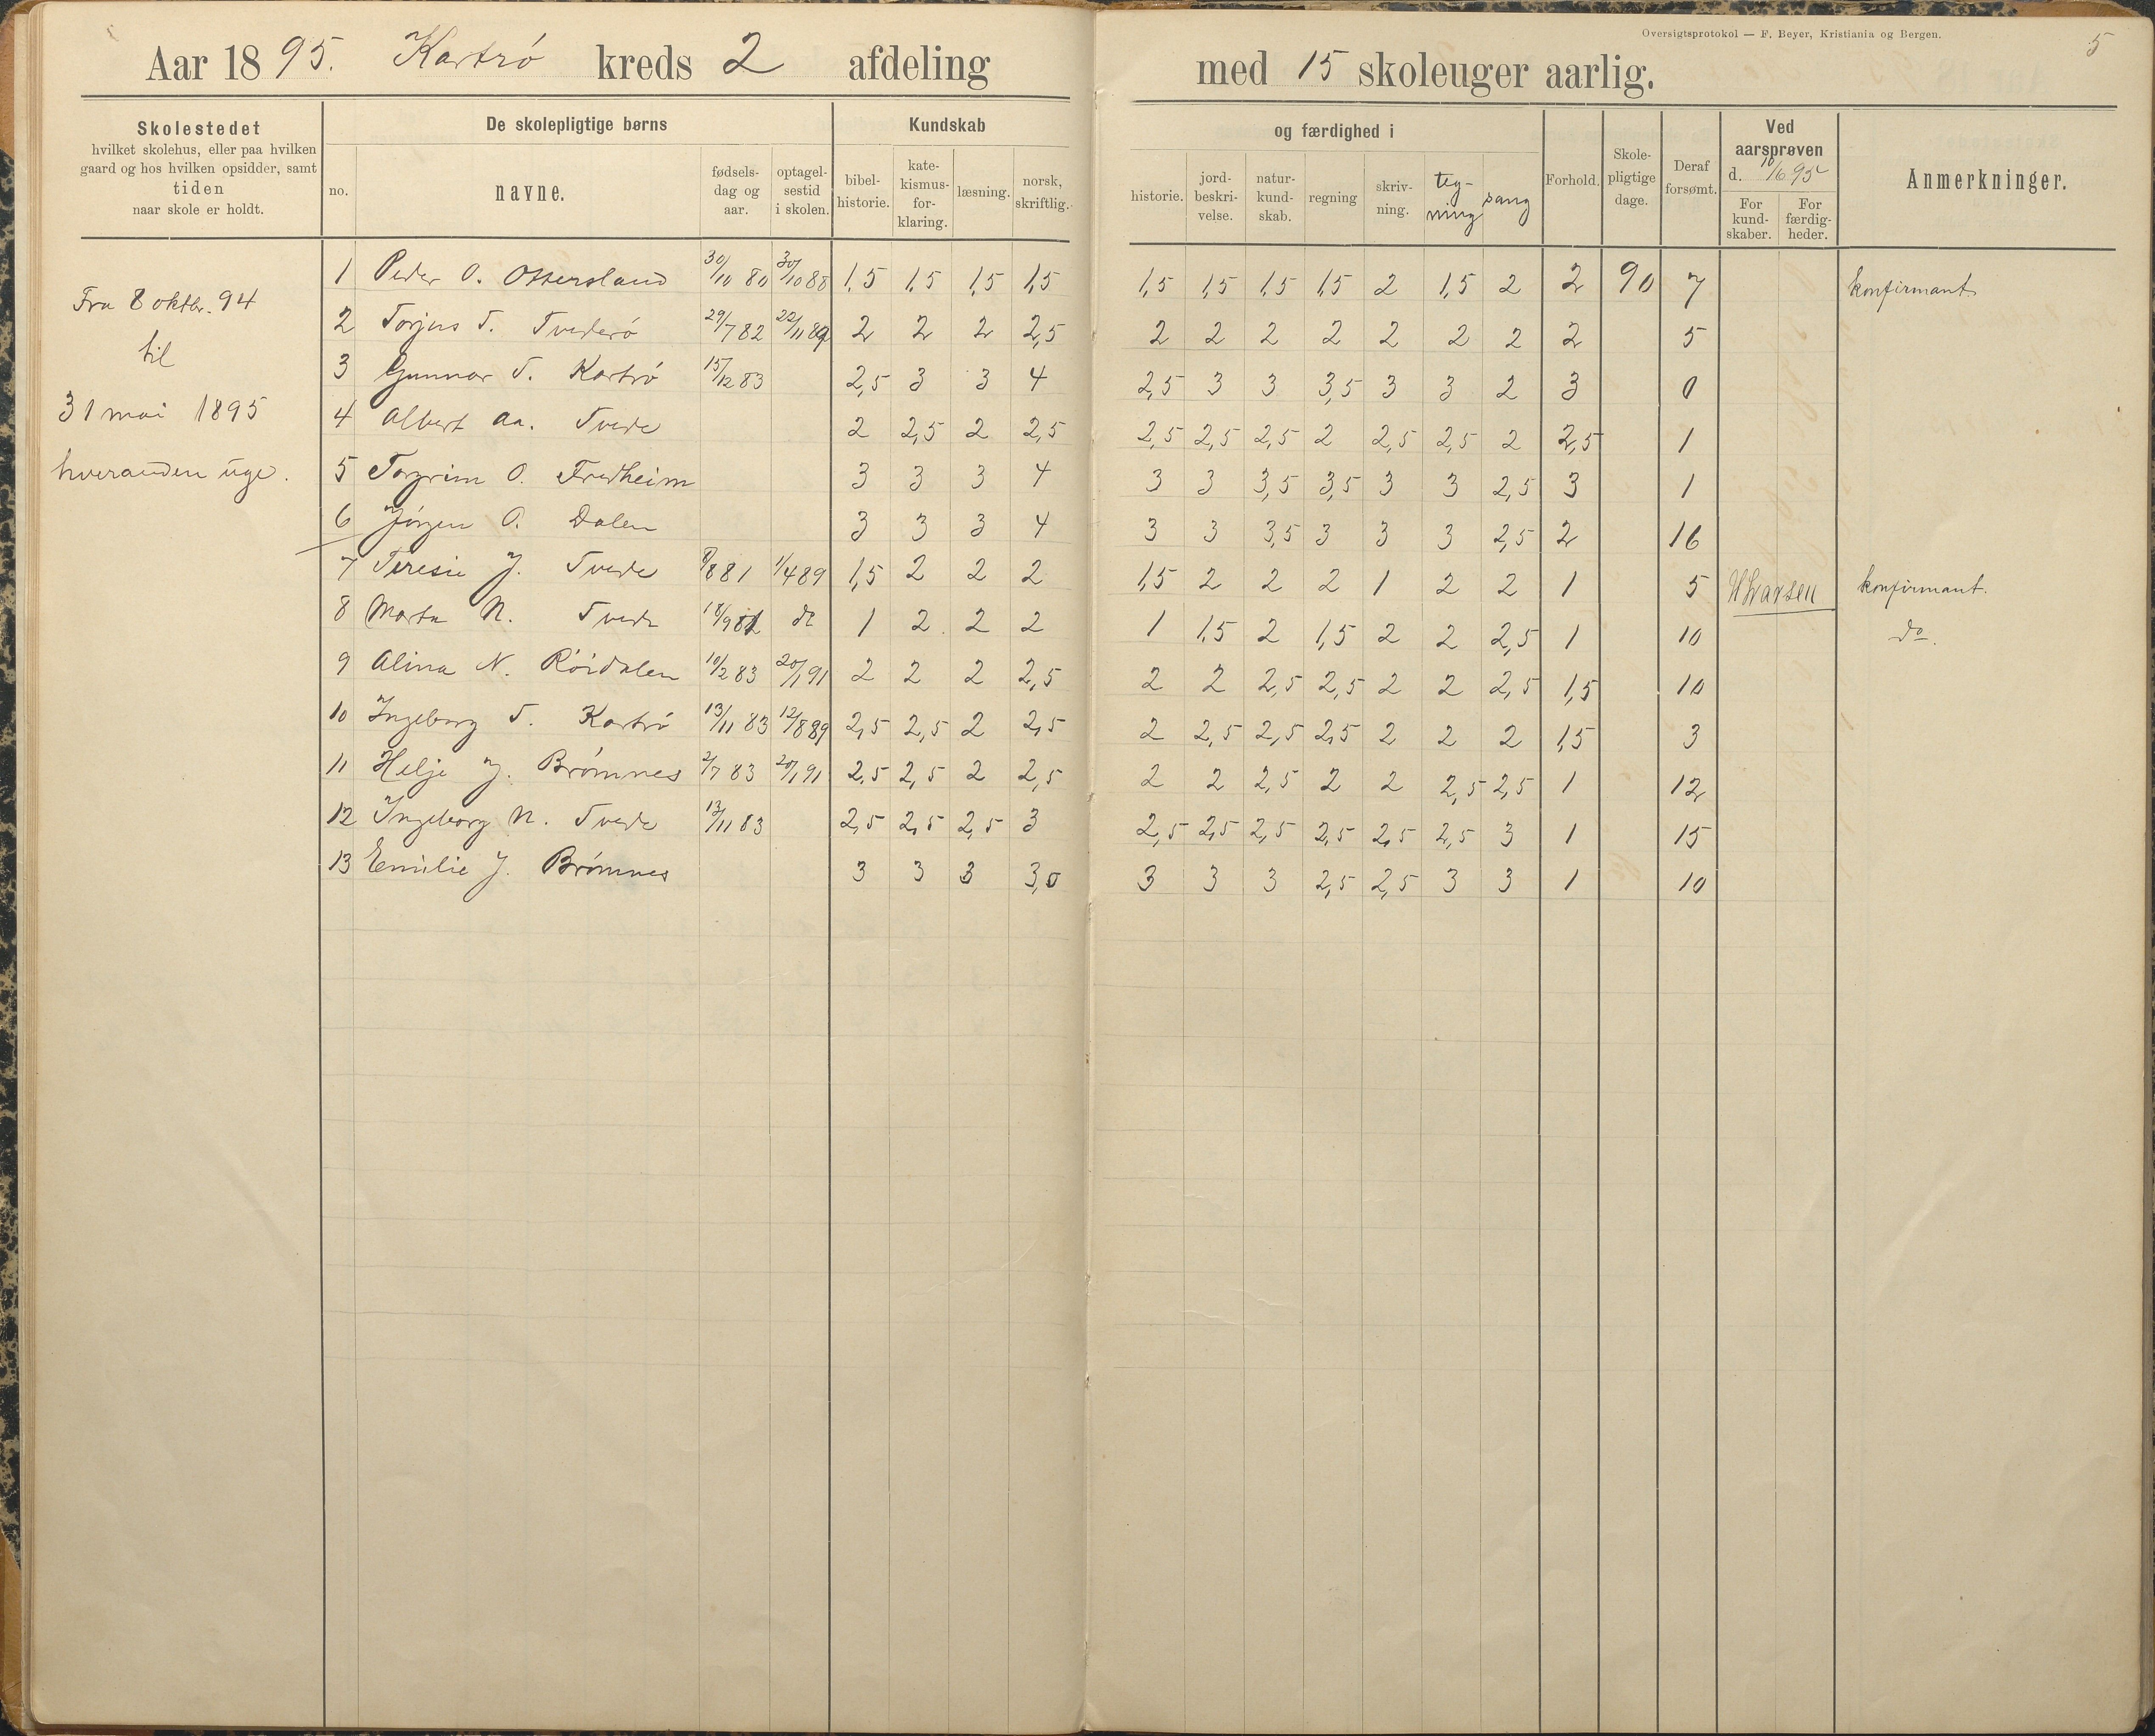 Oversigtsprotokol — F. Beyer, Kristiania og Bergen.
5
Aar 1895. Kartrø kreds 2 afdeling med 15 skoleuger aarlig.
Skolestedet
hvilket skolehus, eller paa hvilken
gaard og hos hvilken opsidder, samt
tiden
naar skole er holdt.
De skolepligtige børns
no.
navne.
fødsels-
dag og
aar.
optagel-
sestid
i skolen.
Kundskab
bibel-
historie.
kate-
kismus-
for-
klaring.
læsning.
norsk,
skriftlig.
og færdighed i
historie.
jord-
beskri-
velse.
natur-
kund-
skab.
regning
skriv-
ning.
teg-
ning
sang
Forhold.
Skole-
pligtige
dage.
Deraf
forsømt.
Ved
aarsprøven
d. 10/6 95
For
kund-
skaber.
For
færdig-
heder.
Anmerkninger.
Fra 8 oktbr. 94
til
31 mai 1895
hveranden uge.
1 Peder O. Ottersland 30/10 80 30/10 88 1,5 1,5 1,5 1,5 1,5 1,5 1,5 1,5 2 1,5 2 2 90 7 konfirmant
2 Torjus T. Tvederø 29/7 82 22/11 89 2 2 2 2,5 2 2 2 2 2 2 2 2 5
3 Gunnar T. Kartrø 15/12 83 2,5 3 3 4 2,5 3 3 3,5 3 3 2 3 0
4 Albert Aa. Tvede 2 2,5 2 2,5 2,5 2,5 2,5 2 2,5 2,5 2 2,5 1
5 Torgrim O. Fredheim 3 3 3 4 3 3 3,5 3,5 3 3 2,5 3 1
6 Jørgen O. Dalen 3 3 3 4 3 3 3,5 3 3 3 2,5 2 16
7 Teresie J. Tvede 8/8 81 1/4 89 1,5 2 2 2 1,5 2 2 2 1 2 2 1 5 H Larsen konfirmant.
8 Marta N. Tvede 18/9 81 do 1 2 2 2 1 1,5 2 1,5 2 2 2,5 1 10 do.
9 Alina N. Röidalen 10/2 83 20/1 91 2 2 2 2,5 2 2 2,5 2,5 2 2 2,5 1,5 10
10 Ingeborg T. Kartrø 13/11 83 12/8 89 2,5 2,5 2 2,5 2 2,5 2,5 2,5 2 2 2 1,5 3
11 Helje J. Brømnes 2/7 83 20/1 91 2,5 2,5 2 2,5 2 2 2,5 2 2 2,5 2,5 1 12
12 Ingeborg N. Tvede 13/11 83 2,5 2,5 2,5 3 2,5 2,5 2,5 2,5 2,5 2,5 3 1 15
13 Emilie J. Brømnes 3 3 3 3,0 3 3 3 2,5 2,5 3 3 1 10